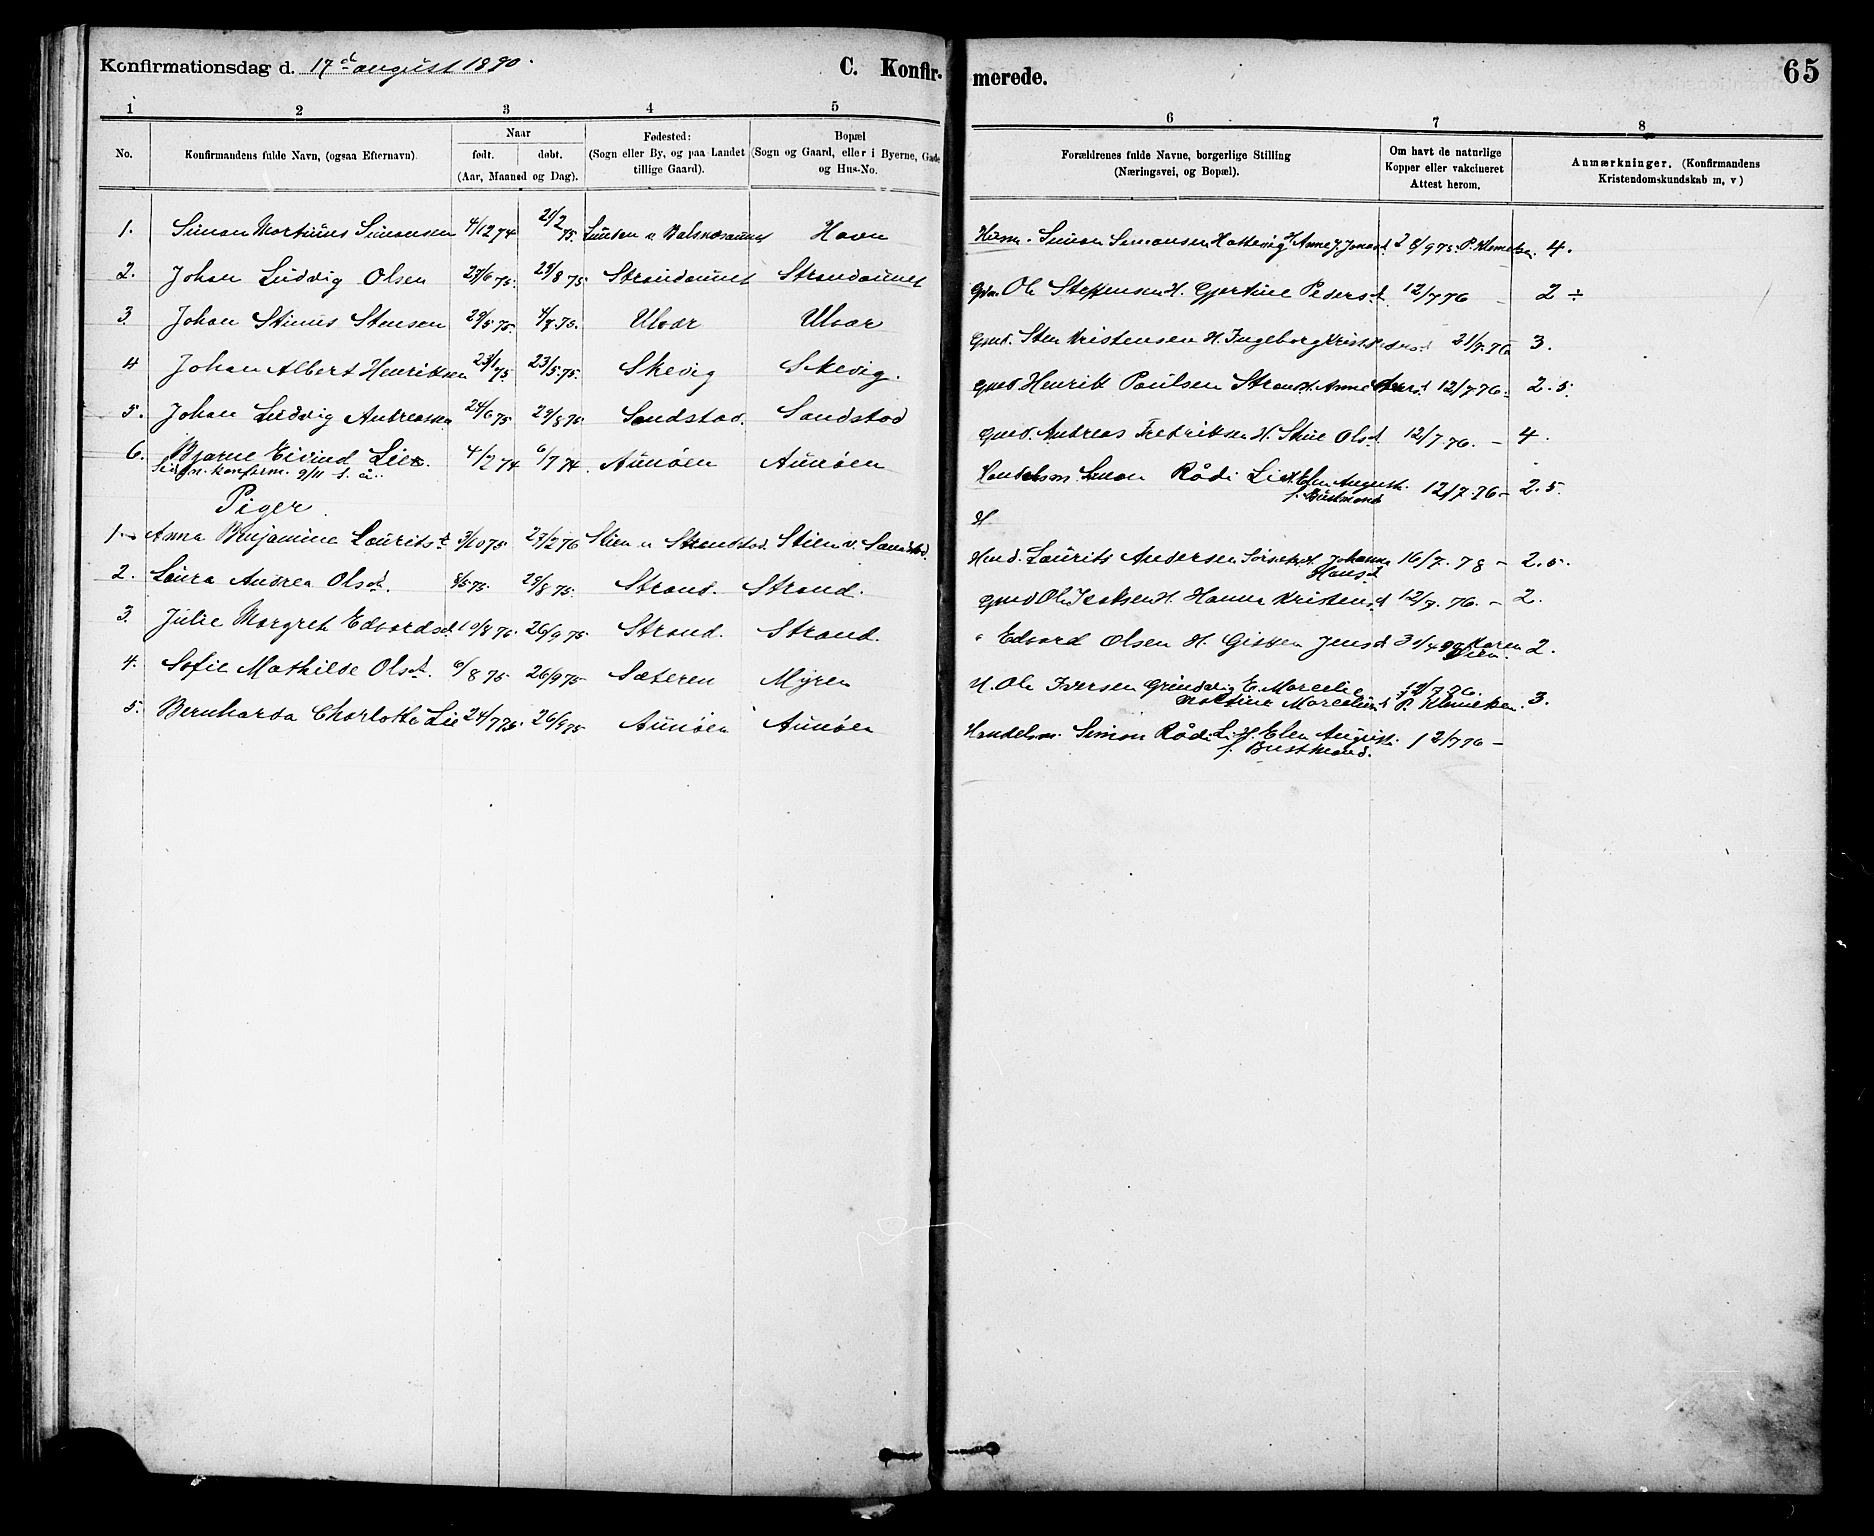 Konfirmationsdag d. 17de august 1890.
C. Konfir-
merede.
65
1 2 3 4 5 6 7 8
No.
Konfirmandens fulde Navn, (ogsaa Efternavn).
Naar
født. døbt.
(Aar, Maaned og Dag).
Fødested:
(Sogn eller By, og paa Landet
tillige Gaard).
Bopæl
(Sogn og Gaard, eller i Byerne, Gade
og Hus-No.
Forældrenes fulde Navne, borgerlige Stilling
(Næringsvei, og Bopæl).
Om havt de naturlige
Kopper eller vakcineret
Attest herom.
Anmærkninger. (Konfirmandens
Kristendomskundskab m, v)
1. Simon Martinus Simonsen 4/12 74 21/2 75. Havn Simon Simonsen Hattevig H. Anne J. Jonasd. 28/9 75. P. Klemetsen. 4.
2. Johan Ludvig Olsen 27/6 75. 29/8 75 Strandaunet Strandaunet Ole Steffensen H. Gjertine Pedersd. 12/7 76 - 2 ÷
3. Johan Stinus Stensen 29/5 75. 4/7 75. Ulvær Ulvær Gmd. Sten Kristensen H. Ingeborg 21/7. 76 3.
4 Johan Albert Henriksen 23/1 75 23/5 75. Skevig Skevig. Gmd Henrik Paulsen 12/7 76 - 2.5.
5. Johan Ludvig Andreasen 24/6 75 29/8 75. Sandstad. Sandstad Gmd. Andreas Fredriksen H. Olsd. 12/7. 76. - 4.
6. Bjarne Eivind Lie. 4/2 74 6/7 74 Aunøen Aunøen Handelsm. Simon Rådi Lie H. Elen August. 12/7. 76 - 2.5.
konfirm. 9/11 s. å. f. Bustmand
Piger.
H
1. Anna Benjamine Lauritsd. 3/10 75 27/2 76 Stien v. Sandstad. Stien v. Sandstad. Laurits Andersen H. Johanna 16/7. 78 - 2.5.
Hansd.
2. Laura Andrea Olsd. 8/5 75. 29/8 75. Strand. Strand. Gmd Ole Isaksen H. Hanna Kristensd. 12/7. 76. - 2.
3. Julie Margreth Edvardsd. 10/8 75. 26/9 75. Strand. Strand. " Edvard Olsen H. Gisken Jensd. 2.
4. Sofie Mathilde Olsd. 6/8 75 26/9 75 Sæteren Myren Ole Iversen Grindvig 12/7 76. 3.
P. Klemetsen.
5. Bernharda Charlotte Lie 24/7 75. 26/9 75 Aunøen Aunøen Handelsm. Simon Rådi Lie H. Elen August. 12/7 76 -
f. Bustmand.